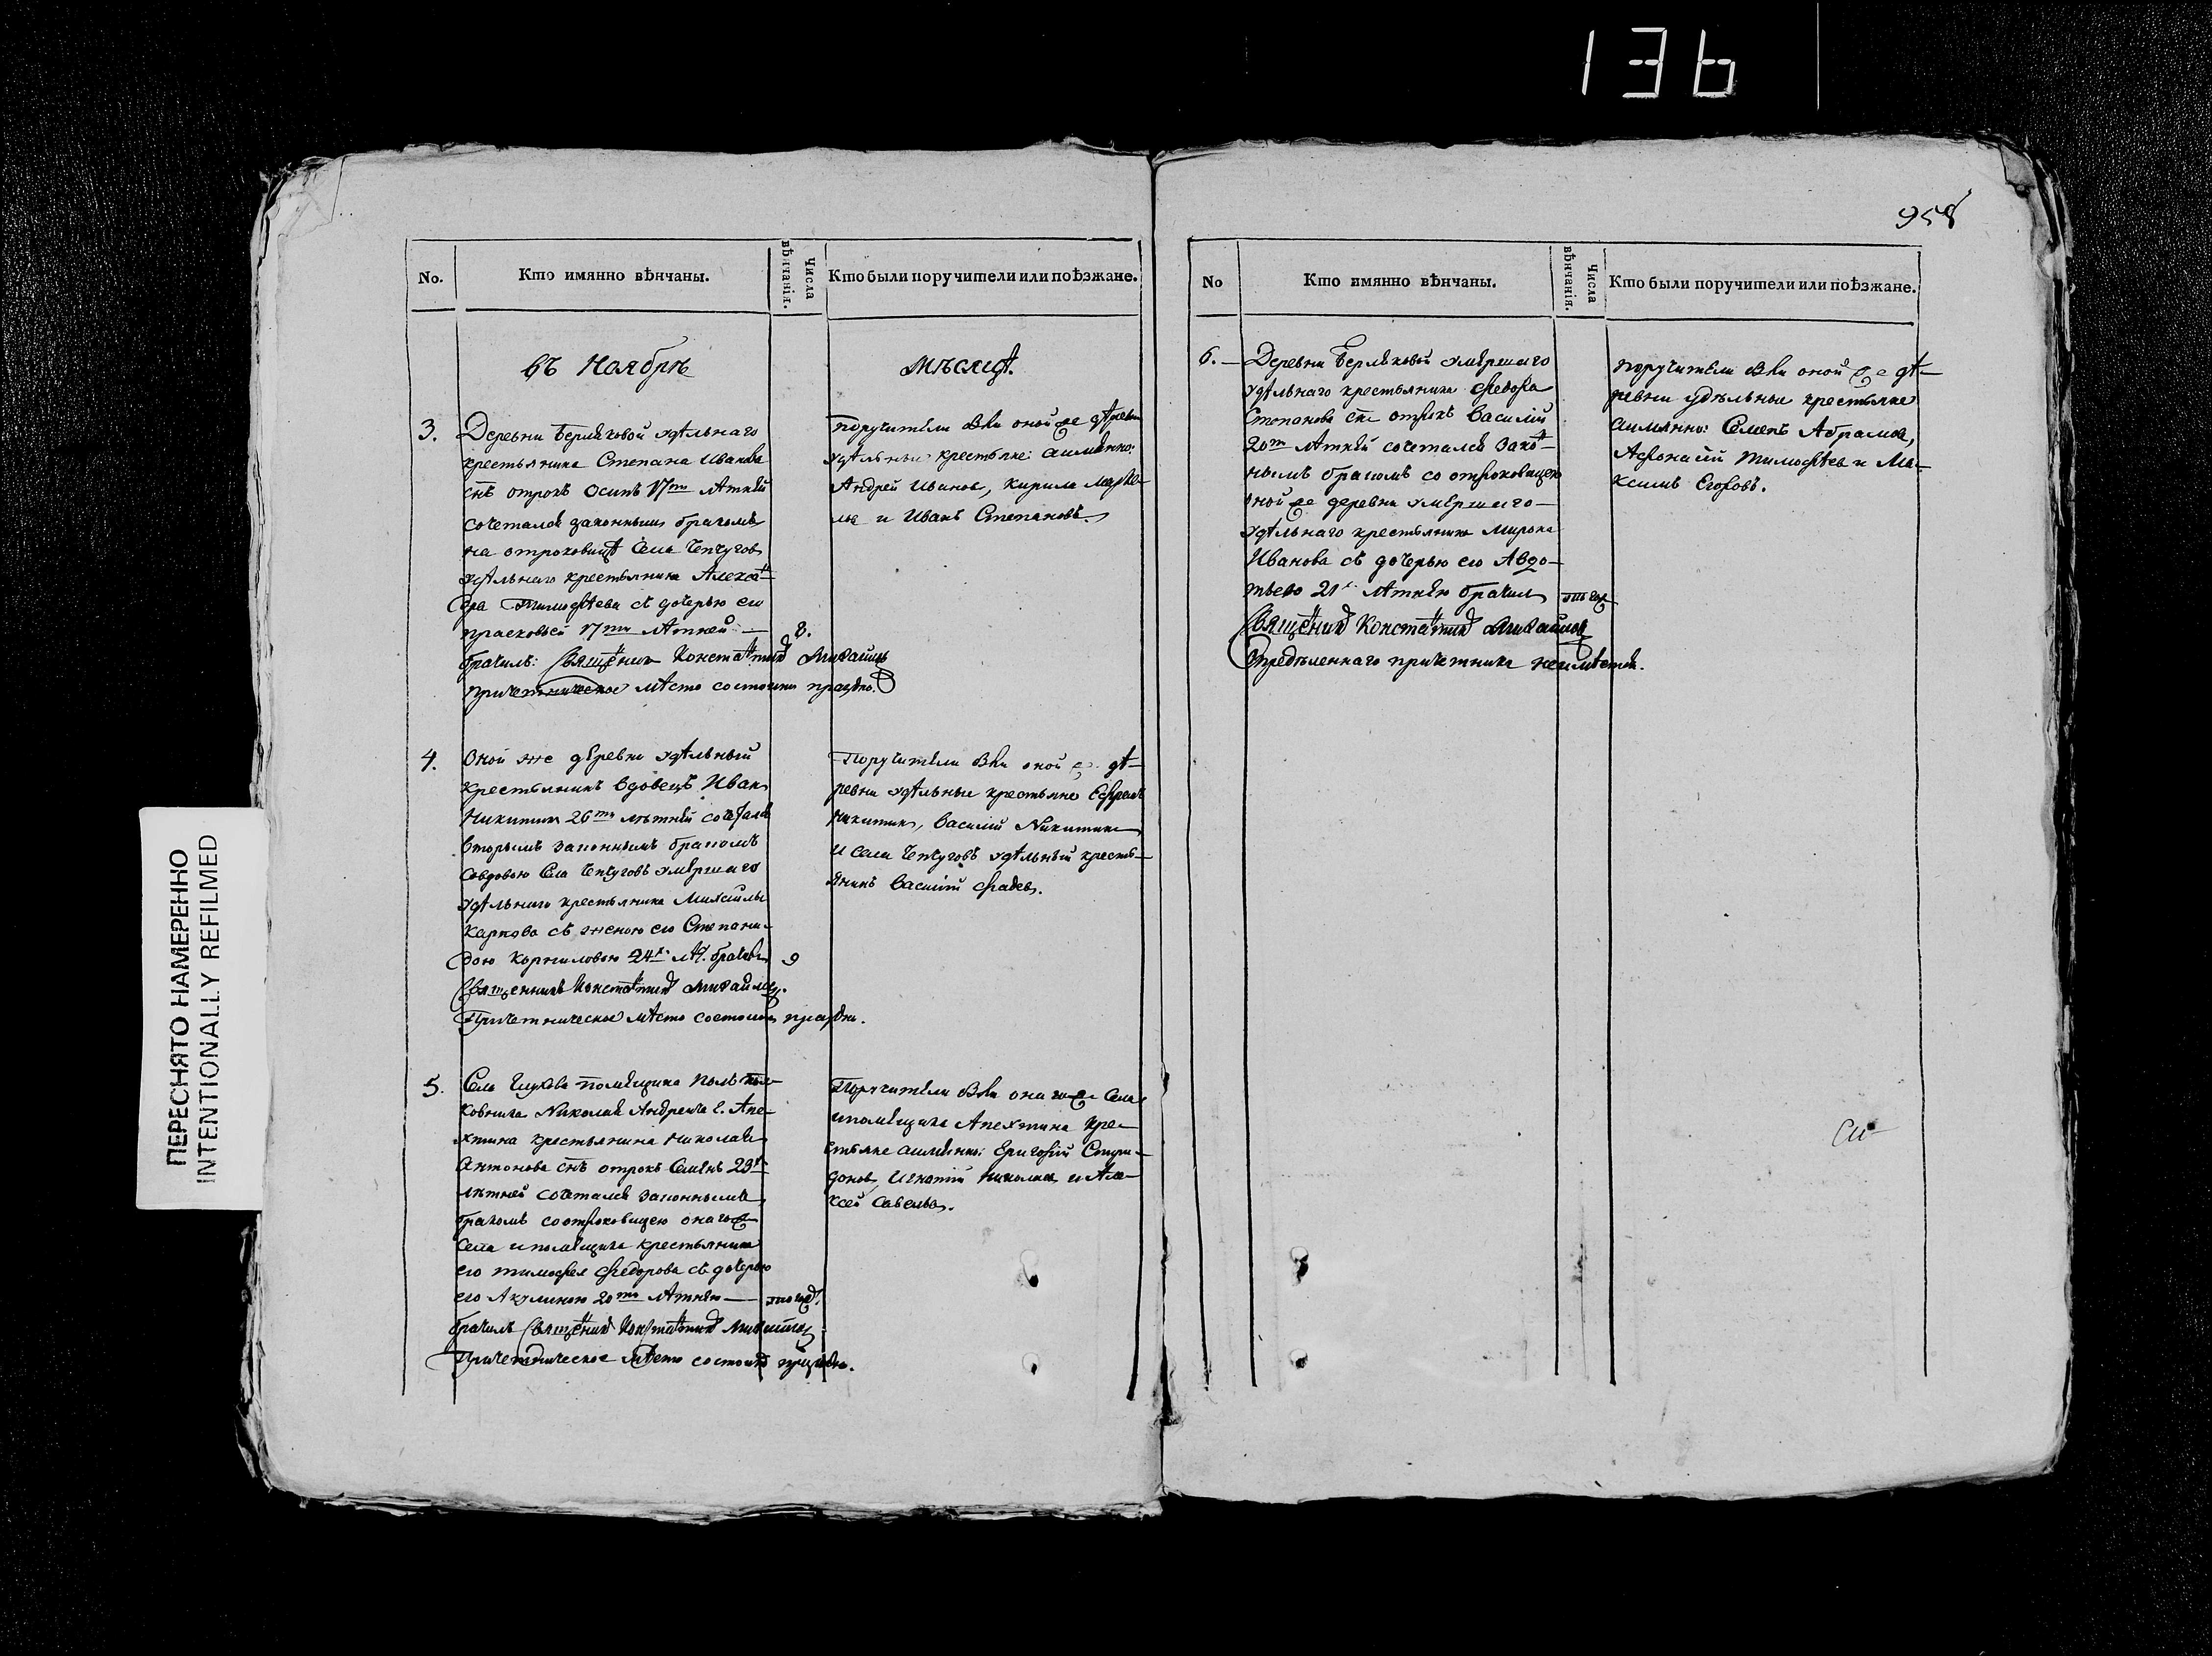 136
958
No.
Кто имянно вѣнчаны.
Числа вѣнчанія.
Кто были поручители или поѣзжане.
въ Ноябрѣ
мѣсяцѣ.
3.
Деревни Берляковой удѣльнаго
крестьянина Степана Иванова
снъ отрокъ Осипъ 17ти лѣтній
сочетался законнымъ бракомъ
на отроковицѣ Села Чепчугов
удѣльнаго крестьянина Алекса
дра Тимофѣева съ дочерью его
прасковьей 17ти лѣтней —
8.
бракъ: Священикъ Констатинъ Михайловъ
причетническое мѣсто состоитъ праздно.
поручители были оной же деревни
удѣльныи крестьяне: аимянно:
Андрей Иванов, Кирила
и Иванъ Степановъ.
4.
Оной же деревни удѣльный
крестьянинъ вдовецъ Иван
Никитин 26ти лѣтній сочетался
вторымъ законнымъ бракомъ
совдовою Села Чепчуговъ умершаго
удѣльнаго крестьянина Михайлы
Карпова съ женою его Степани
дою Корниловою 24х лѣт.
9
Священникъ Констатинъ Михайлов.
Причетническое мѣсто состоитъ праздно.
Поручители были оной же де
ревни удѣльные крестьяне Ефремъ
Никитин, Василій Никитин
и Села Чепчуговъ удѣльный кресть
янинъ Василій Фадев.
5.
Села помѣщика
ковника Николая Андреича Г. Апе
хтина крестьянина Николая
Антонова снъ отрокъ Семенъ 23х
лѣтней сочетался законнымъ
бракомъ соотроковицею онагоже
Села и помѣщика крестьянина
его Тимофея Федорова съ дочерью
его Акулиною 20ти лѣтнею —
Священикъ Констатинъ Михайлов
Причетническое мѣсто состоитъ праздно.
Поручители были онагоже Села
ипомѣщика Апехтина кре
стьяне аимянно: Григорій Спири
донов, Игнатій Николаев и Але
ксей Савельев.
No
Кто имянно вѣнчаны.
Числа вѣнчанія.
Кто были поручители или поѣзжане.
6.
Деревни Берляковой умершаго
удѣльнаго крестьянина Федора
Степанова снъ отрокъ Василій
20ти лѣтній сочетался зако
нымъ бракомъ со отроковицею
оной же деревни умершаго
удѣльнаго крестьянина Мирона
Иванова съ дочерью его Авдо
тьею 21 лѣтнею
Священикъ Констатинъ Михайлов
Опредѣленнаго причетника неимѣется.
поручители были оной же де
ревни удѣльныи крестьяне
аимянно: Семенъ Абрамов,
Афонасій Тимофѣев и Ма
ксимъ Егоровъ.
ПЕРЕСНЯТО НАМЕРЕННО
INTENTIONALLY REFILMED